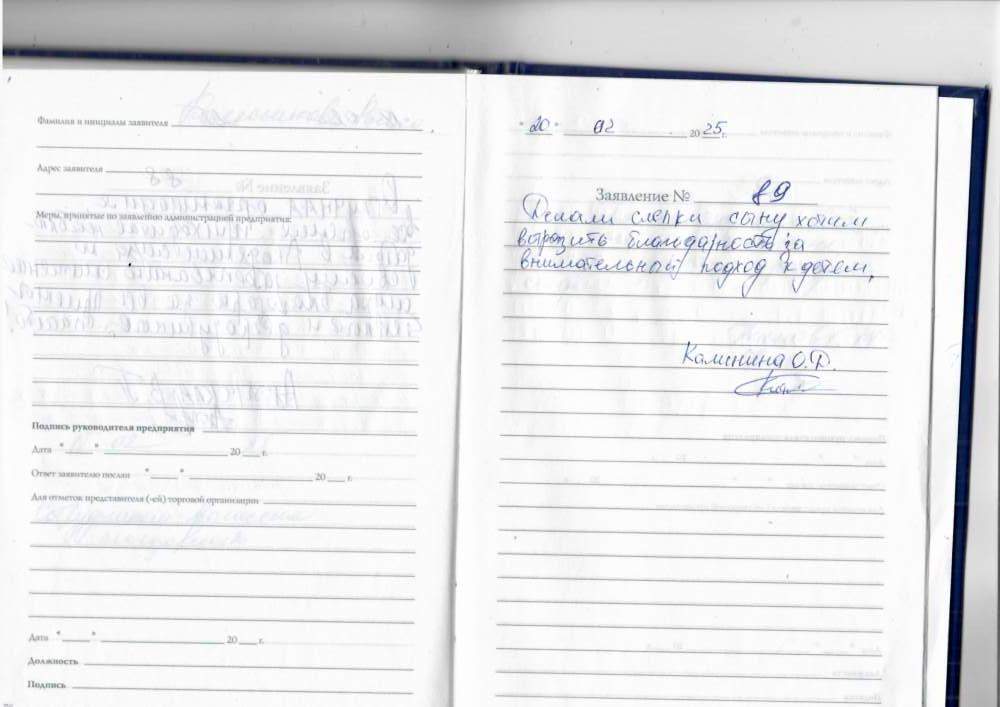 Фамилия и инициалы заявителя
Адрес заявителя
Меры, принятые по заявлению администрацией предприятия:
Подпись руководителя предприятия
Дата "____" ____ 20 ___ г.
Ответ заявителю послан "____" ____ 20 ___ г.
Для отметок представителя (-ей) торговой организации
Дата "____" ____ 20 ___ г.
Должность
Подпись
"20" 02 2025 г.
Заявление № 89
Делали слепки сыну хотим
выразить благодарность за
внимательный подход к детям.
Калинина О.Ф.